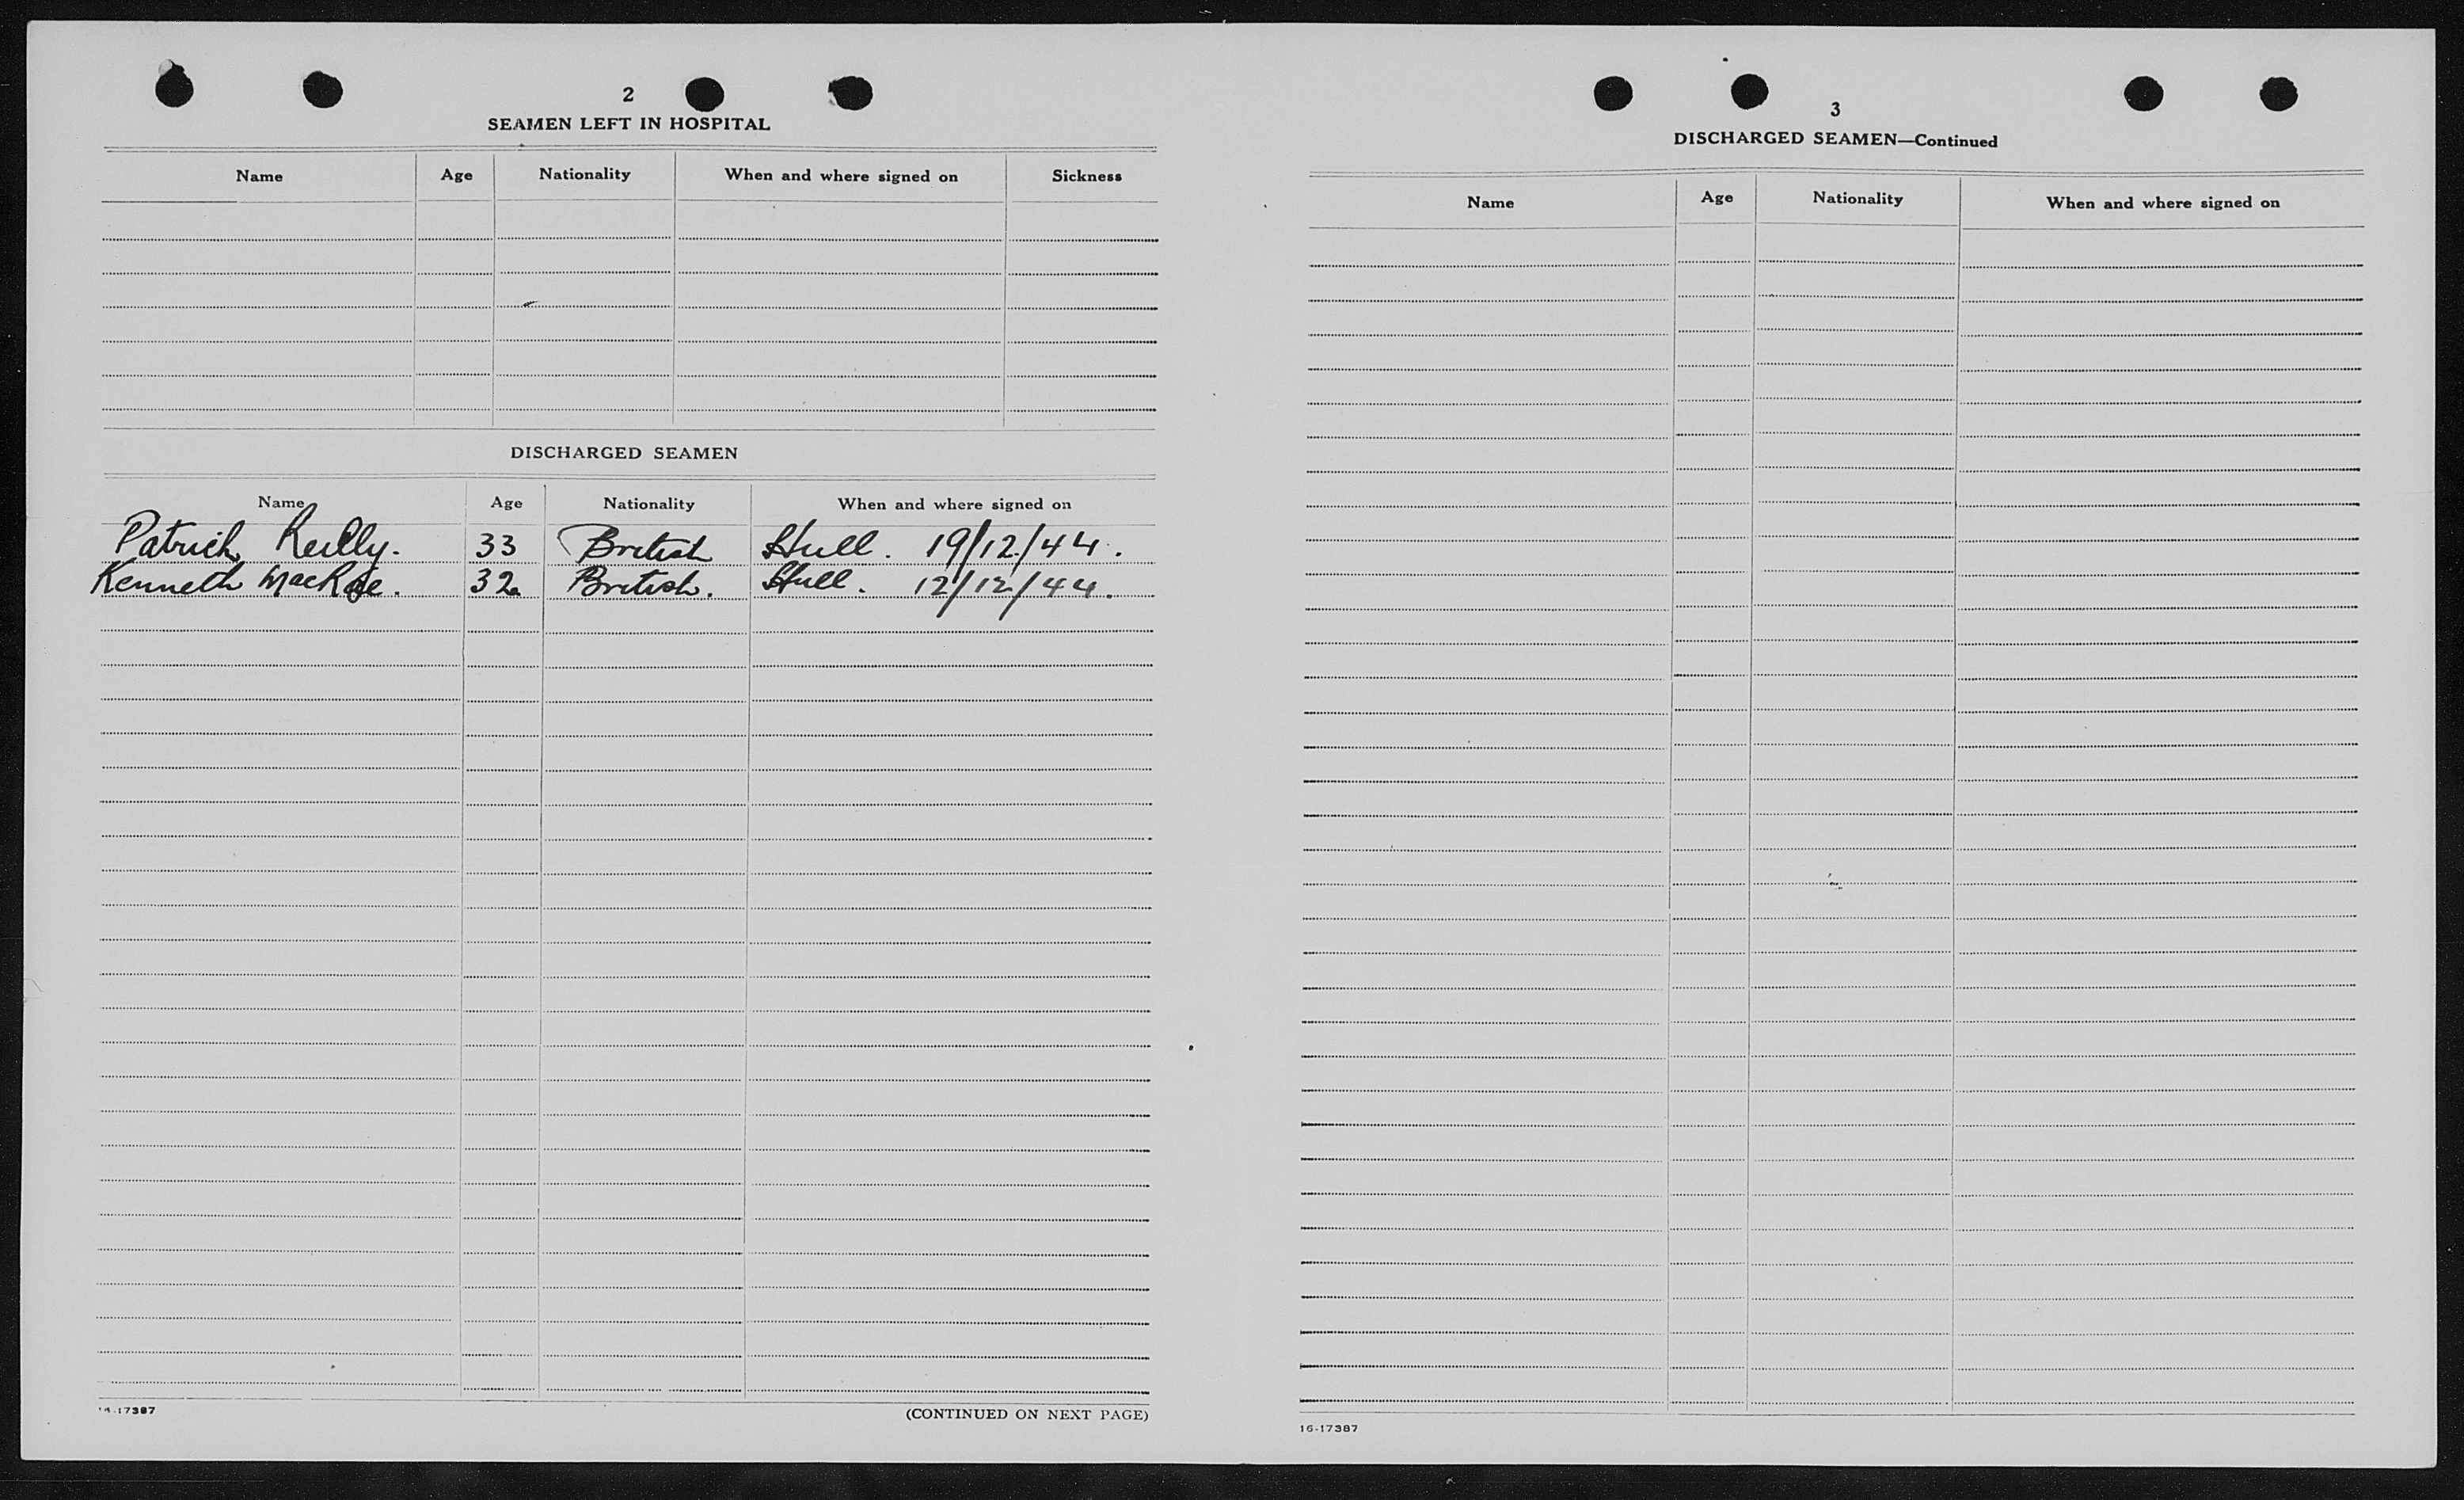 2
SEAMEN LEFT IN HOSPITAL
Name Age Nationality When and where signed on Sickness
DISCHARGED SEAMEN
Name Age Nationality When and where signed on
Patrick Reilly. 33 British Hull. 19/12/44.
Kenneth MacRae. 32 British. Hull. 12/12/44.
16-17387
(CONTINUED ON NEXT PAGE)
3
DISCHARGED SEAMEN—Continued
Name Age Nationality When and where signed on
16-17387